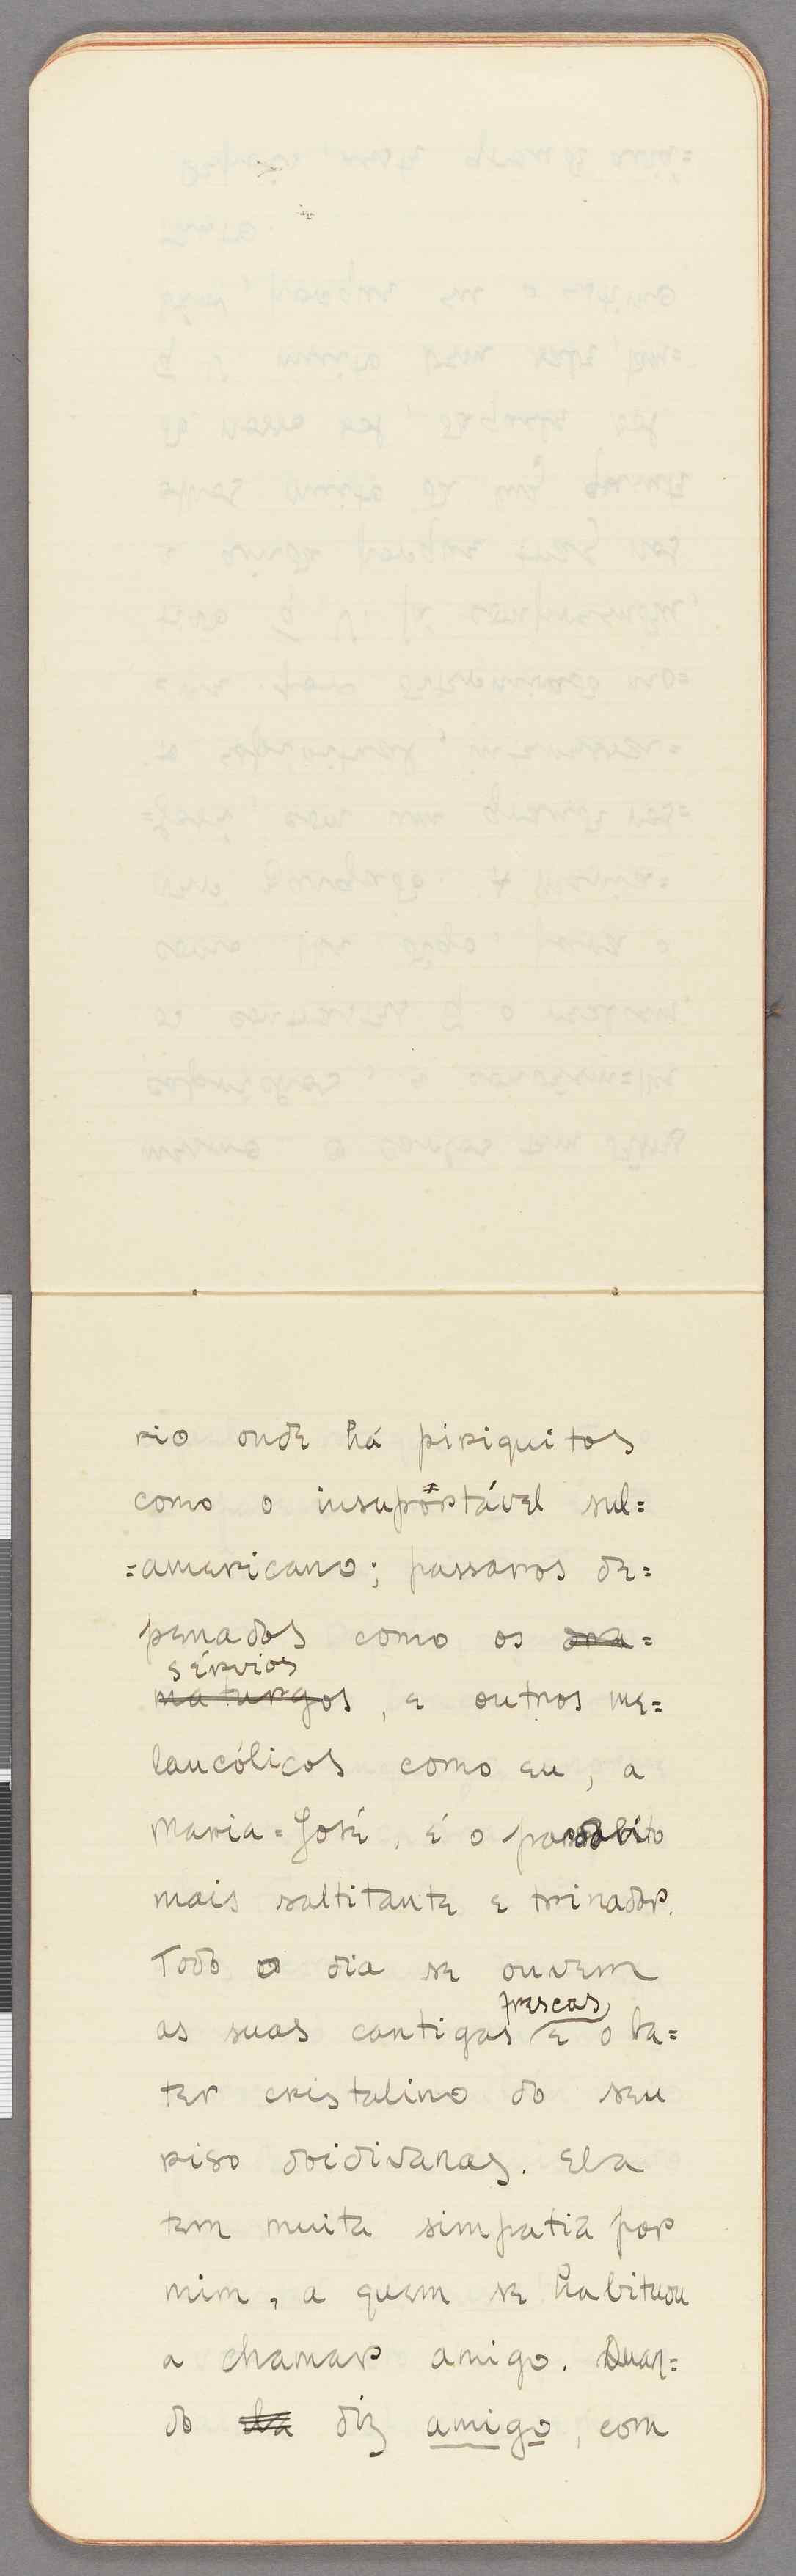 rio onde há piriquitos
como o insuportável sul=
=americano; passaros de=
penados como os dra=
sérvios
maturgos, e outros me=
lancólicos como eu, a
Maria=José, é o
mais saltitante e trinador.
Todo o dia se ouvem
frescas
as suas cantigas e o ba=
ter cristalino do seu
riso doidivanas. Ela
tem muita simpatia por
mim, a quem se habituou
a chamar amigo. Quan=
do ha diz amigo, com